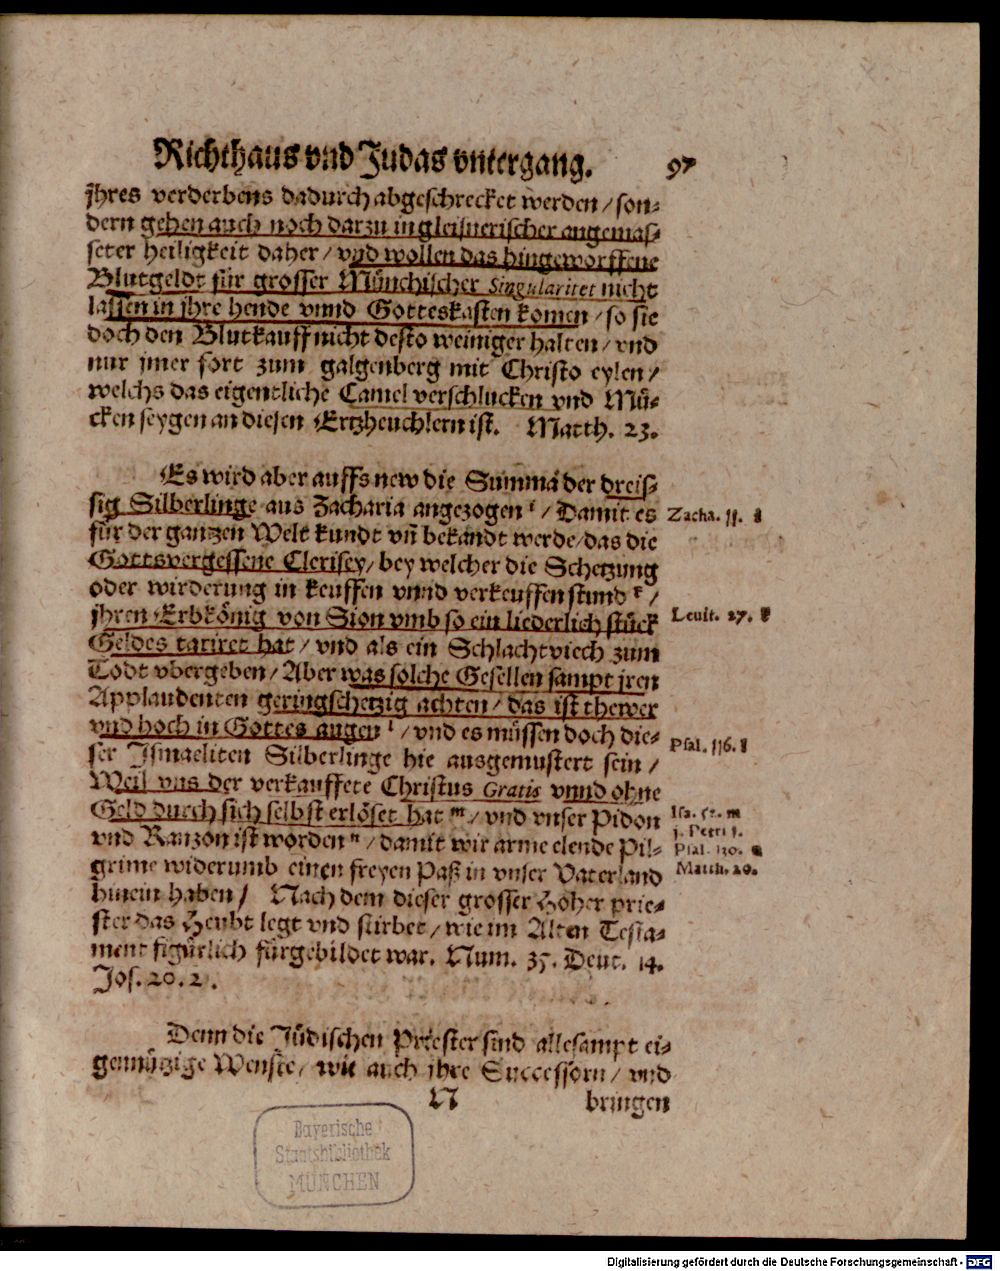 Richthaus vnd Judas vntergang. 97
jhres verderbens dadurch abgeschrecket werden / son-
dern gehen auch noch darzu in gleisnerischer angemas-
seter heiligkeit daher / vnd wollen das hingeworffene
Blutgeldt für grosser Münchischer Singularitet nicht
lassen in jhre hende vnnd Gotteskasten komen / so sie
doch den Blutkauff nicht desto weiniger halten / vnd
nur jmer fort zum galgenberg mit Christo eylen /
welchs das eigentliche Camel verschlucken vnd Mü-
cken seygen an diesen Ertzheuchlern ist. Matth. 23.
Es wird aber auffs new die Summa der dreis-
sig Silberlinge aus Zacharia angezogen / Damit es
Zacha. 11.
für der gantzen Welt kundt vñ bekandt werde / das die
Gottsvergessene Clerisey / bey welcher die Schetzung
oder wirderung in keuffen vnnd verkeuffen stund k /
Levit. 27. k
jhren Erbkönig von Sion vmb so ein liederlich stück
Geldes taxiret hat / vnd als ein Schlachtviech zum
Todt vbergeben / Aber was solche Gesellen sampt jren
Applaudenten geringschetzig achten / das ist thewer
vnd hoch in Gottes augen l / vnd es müssen doch die-
Psal. 116. l
ser Ismaeliten Silberlinge hie ausgemustert sein /
Weil vns der verkauffete Christus Gratis vnnd ohne
Geld durch sich selbst erlöset hat m / vnd vnser Pidon
Isa. 52. m
1. Petri 1.
vnd Ranzon ist worden n / damit wir arme elende Pil-
Psal. 130. n
grime widerumb einen freyen Paß in vnser Vaterland
Matth. 20.
hinein haben / Nach dem dieser grosser Hoher prie-
ster das Heubt legt vnd stirbet / wie im Alten Testa-
ment figürlich fürgebildet war. Num. 35. Deut. 14.
Jos. 20. 2.
Denn die Jüdischen Priester sind allesampt ei-
gennützige Wenste / wie auch jhre Successorn / vnd
N bringen
Bayerische
Staatsbibliothek
MÜNCHEN
Digitalisierung gefördert durch die Deutsche Forschungsgemeinschaft - DFG